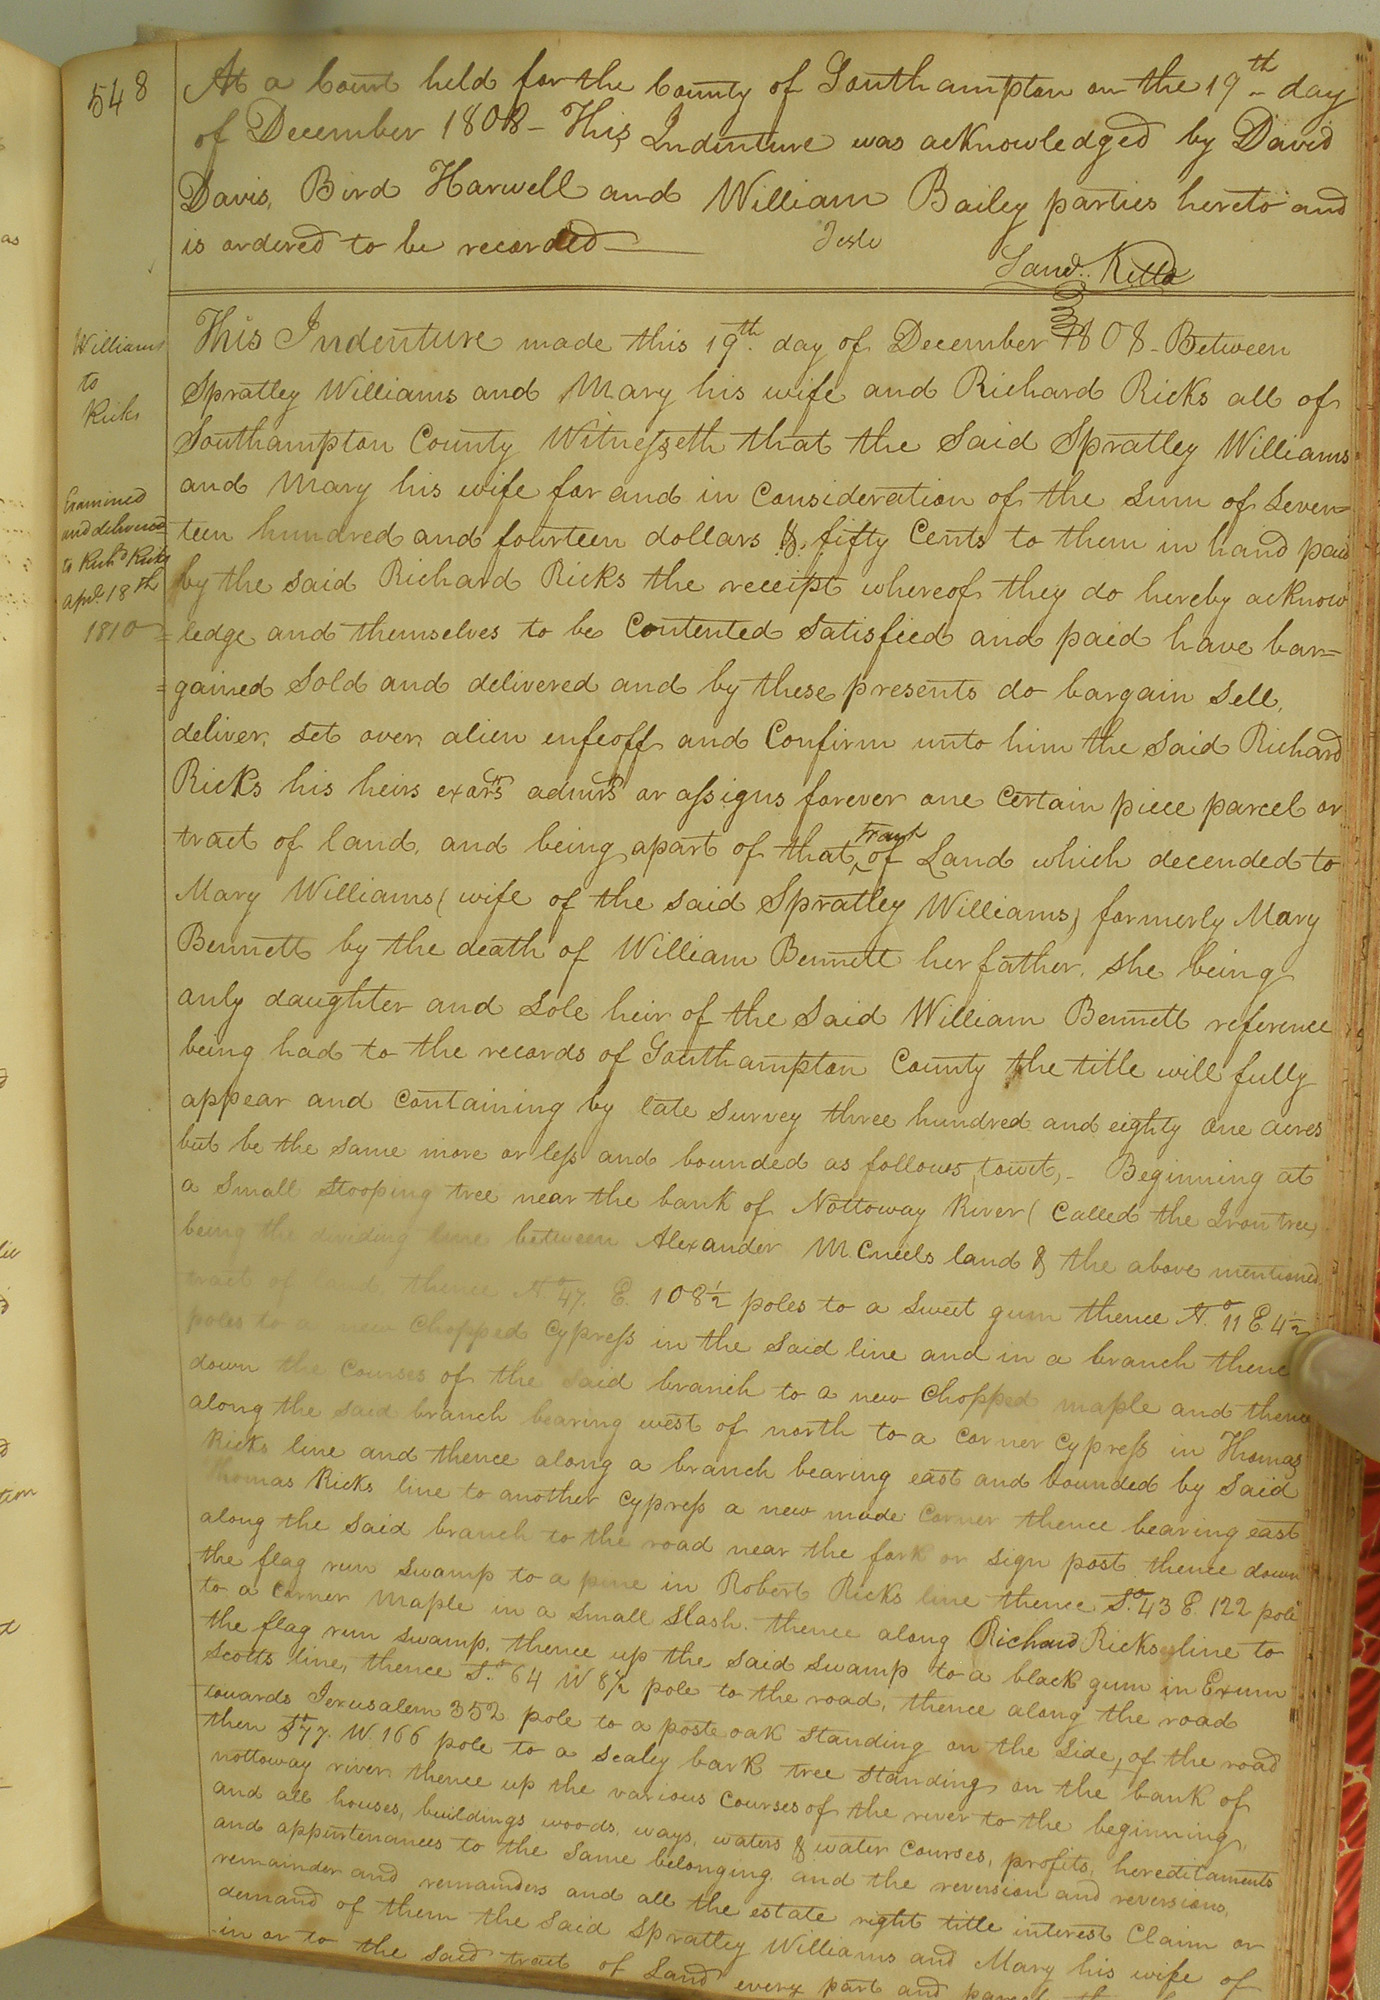 548
At a Court held for the County of Southampton on the 19th day
of December 1808 - This Indenture was acknowledged by David
Davis, Bird Harwell and William Bailey parties hereto and
is ordered to be recorded
Teste
Saml. Kello
Williams
to
Ricks
Examined
and delivered
to Richd Ricks
apl. 18th
1810
This Indenture made this 19th day of December 1808 - Between
Spratley Williams and Mary his wife and Richard Ricks all of
Southampton County Witnesseth that the said Spratley Williams
and Mary his wife for and in Consideration of the Sum of Seven=
=teen hundred and fourteen dollars & fifty Cents to them in hand paid
by the said Richard Ricks the receipt whereof they do hereby acknow
=ledge and themselves to be Contented Satisfied and paid have bar=
=gained Sold and delivered and by these presents do bargain Sell,
deliver, set over, alien enfeoff and Confirm unto him the said Richard
Ricks his heirs exors admrs or assigns forever one Certain piece parcel or
tract of land, and being apart of that Tract of Land which decended to
Mary Williams (wife of the said Spratley Williams) formerly Mary
Bennett by the death of William Bennett her father, she being
only daughter and Sole heir of the Said William Bennett reference
being had to the records of Southampton County the title will fully
appear and Containing by late Survey three hundred and eighty one acres
but be the same more or less and bounded as follows, towit, - Beginning at
a Small Stooping tree near the bank of Nottoway River (Called the Iron tree)
being the dividing line between Alexander McCneels land & the above mentioned
tract of land thence No. 47. E. 108½ poles to a Sweet gum thence No. 11 E 4½
poles to a new Chopped Cypress in the said line and in a branch thence
down the Courses of the Said branch to a new Chopped maple and thence
along the said branch bearing west of north to a Corner Cypress in Thomas
Ricks line and thence along a branch bearing east and bounded by Said
Thomas Ricks line to another Cypress a new made Corner thence bearing east
along the Said branch to the road near the fork or sign post thence down
the flag run swamp to a pine in Robert Ricks line thence So. 43 E. 122 pole
to a Corner Maple in a Small Slash. thence along Richard Ricks line to
the flag run swamp, thence up the said swamp to a black gum in Exum
Scotts line, thence So. 64 W 8½ pole to the road, thence along the road
towards Jerusalem 352 pole to a poste oak Standing on the Side, of the road
then So 77. W. 166 pole to a Scaley bark tree Standing on the bank of
nottoway river thence up the various Courses of the river to the beginning,
and all houses, buildings woods, ways, waters & water Courses, profits, hereditaments
and appurtenances to the Same belonging, and the reversion and reversions,
remainder and remainders and all the estate right title interest Claim or
demand of them the said Spratley Williams and Mary his wife of
in or to the said tract of Land every part and parcel